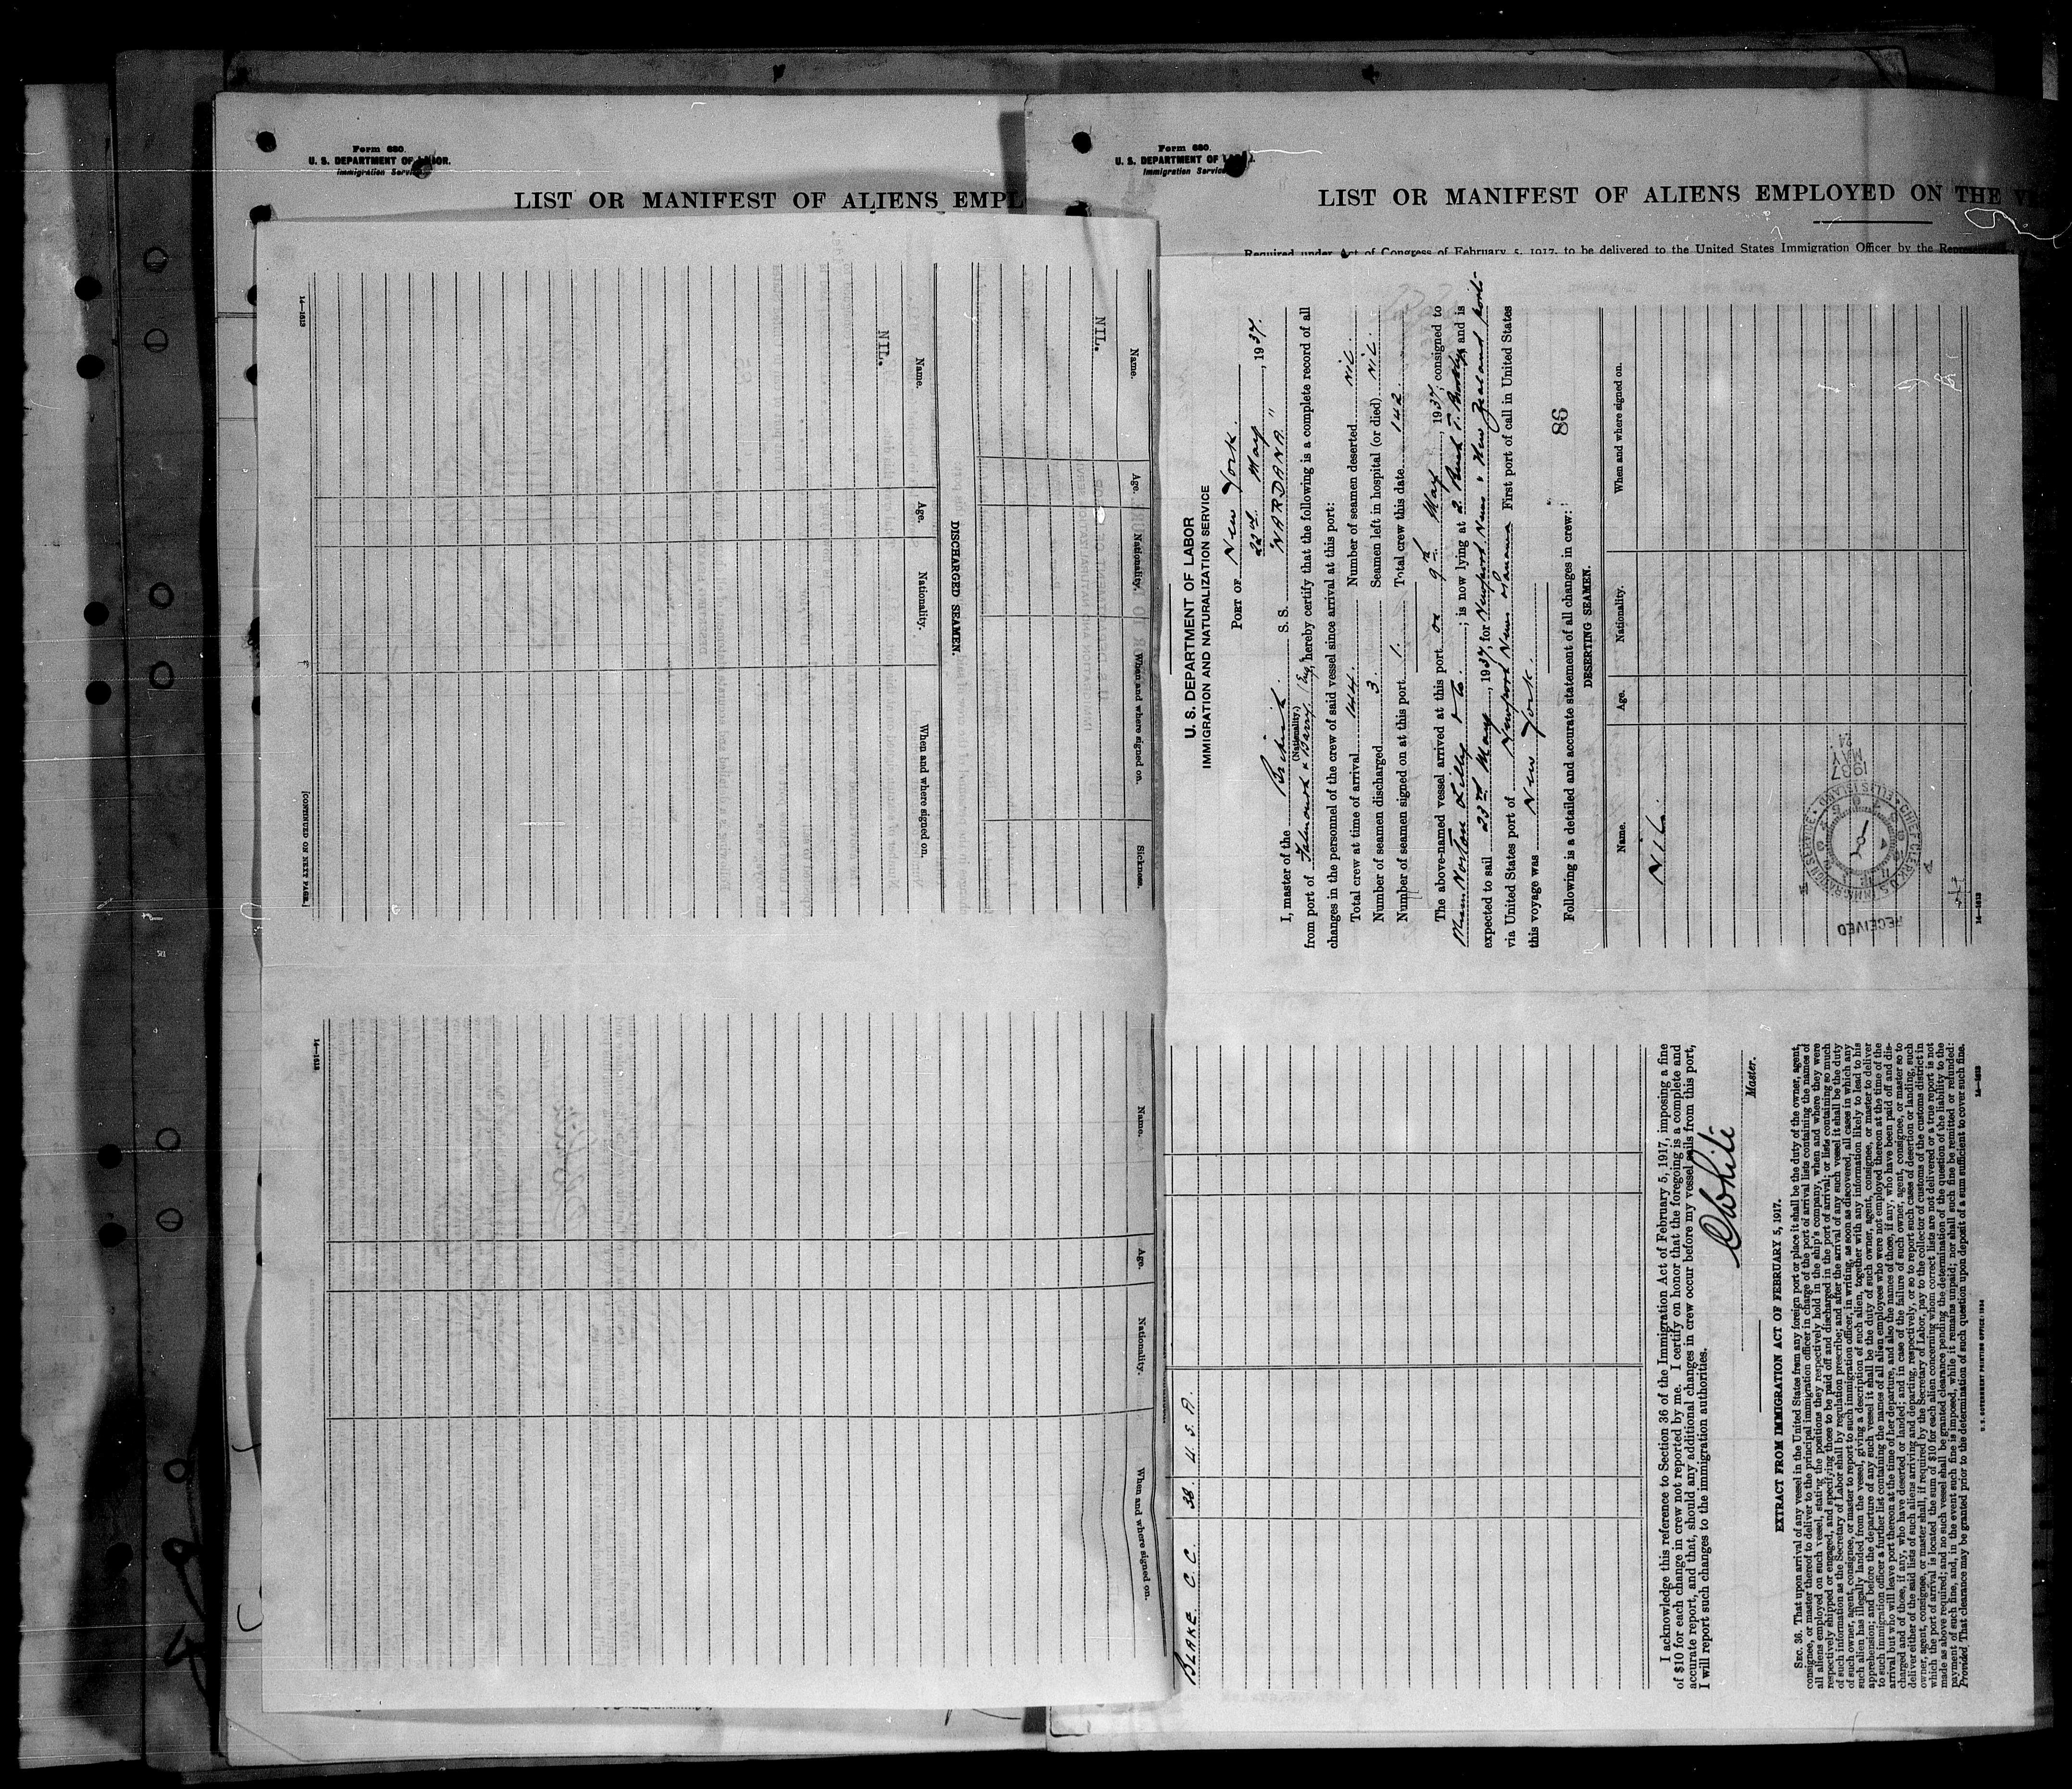 Form 680.
U. S. DEPARTMENT OF LABOR.
Immigration Service
LIST OR MANIFEST OF ALIENS EMPL
Form 680.
U. S. DEPARTMENT OF
Immigration Service
LIST OR MANIFEST OF ALIENS EMPLOYED ON THE
Required under Act of Congress of February 5, 1917, to be delivered to the United States Immigration Officer by the
Name. Age. Nationality. When and where signed on. Sickness.
NIL.
DISCHARGED SEAMEN.
Name. Age. Nationality. When and where signed on.
NIL.
14—1213
[CONTINUED ON NEXT PAGE.]
Name. Age. Nationality. When and where signed on.
14—1213
U. S. DEPARTMENT OF LABOR
IMMIGRATION AND NATURALIZATION SERVICE
PORT OF New York.
22nd May, 1937.
I, master of the British. S. S. "NARDANA"
(Nationality.)
from port of Falmouth & Barry (Eng), hereby certify that the following is a complete record of all
changes in the personnel of the crew of said vessel since arrival at this port:
Total crew at time of arrival 144. Number of seamen deserted NIL.
Number of seamen discharged 3 Seamen left in hospital (or died) NIL.
Number of seamen signed on at this port 1. Total crew this date 142
The above-named vessel arrived at this port on 9th May, 1937, consigned to
Norton Lilly & Co.; is now lying at 2. and is
expected to sail 23rd May, 1937, for Newport News & New Zealand ports
via United States port of Newport News & Panama First port of call in United States
this voyage was New York.
Following is a detailed and accurate statement of all changes in crew:
86
DESERTING SEAMEN.
Name. Age. Nationality. When and where signed on.
NIL.
RECEIVED
CHIEF CLERK, U.S. IMMIGRATION SERVICE
ELLIS ISLAND
1937
MAY
24
14—1213
BLAKE. C. C. 38 U. S. A
I acknowledge this reference to Section 36 of the Immigration Act of February 5, 1917, imposing a fine
of $10 for each change in crew not reported by me. I certify on honor that the foregoing is a complete and
accurate report, and that, should any additional changes in crew occur before my vessel sails from this port,
I will report such changes to the immigration authorities.
White
Master.
EXTRACT FROM IMMIGRATION ACT OF FEBRUARY 5, 1917.
SEC. 36. That upon arrival of any vessel in the United States from any foreign port or place it shall be the duty of the owner, agent,
consignee, or master thereof to deliver to the principal immigration officer in charge of the port of arrival lists containing the names of
all aliens employed on such vessel, stating the positions they respectively hold in the ship's company, when and where they were
respectively shipped or engaged, and specifying those to be paid off and discharged in the port of arrival; or lists containing so much
of such information as the Secretary of Labor shall by regulation prescribe; and after the arrival of any such vessel it shall be the duty
of such owner, agent, consignee, or master to report to such immigration officer, in writing, as soon as discovered, all cases in which any
such alien has illegally landed from the vessel, giving a description of such alien, together with any information likely to lead to his
apprehension; and before the departure of any such vessel it shall be the duty of such owner, agent, consignee, or master to deliver
to such immigration officer a further list containing the names of all alien employees who were not employed thereon at the time of the
arrival but who will leave port thereon at the time of her departure, and also the names of those, if any, who have been paid off and dis-
charged and of those, if any, who have deserted or landed; and in case of the failure of such owner, agent, consignee, or master so to
deliver either of the said lists of such aliens arriving and departing, respectively, or so to report such cases of desertion or landing, such
owner, agent, consignee, or master shall, if required by the Secretary of Labor, pay to the collector of customs of the customs district in
which the port of arrival is located the sum of $10 for each alien concerning whom correct lists are not delivered or a true report is not
made as above required; and no such vessel shall be granted clearance pending the determination of the question of the liability to the
payment of such fine, and, in the event such fine is imposed, while it remains unpaid; nor shall such fine be remitted or refunded:
Provided, That clearance may be granted prior to the determination of such question upon deposit of a sum sufficient to cover such fine.
14—1213
U. S. GOVERNMENT PRINTING OFFICE: 1934